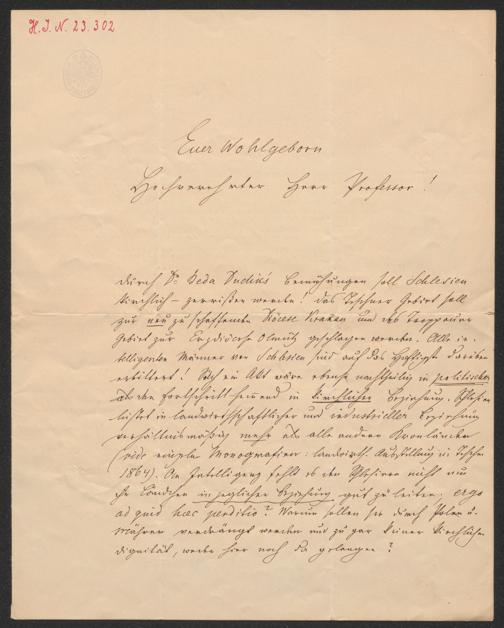 H. I. N. 23.302
Euer Wohlgeborn
Hochverehrter Herr Professor!
Durch Dr Beda Dudik's Bemühungen soll Schlesien
kirchlich – zerrissen werden! Das Teschner Gebiet soll
zur neu zu schaffenden Diöcese Krakau und das Troppauer
Gebiet zur Erzdiöcese Olmütz geschlagen werden. Alle in-
telligenten Männer von Schlesien sind auf das heftigste darüber
erbittert! Solch ein Akt wäre ebenso nachtheilig in politischer
als den Fortschritt hemmend in kirchlicher Beziehung. Schlesien
leistet in landwirthschaftlicher und industrieller Beziehung
verhältnismäßig mehr als alle andern Kronländer
(vide Monografien: landwirth. Ausstellung in Teschen
1864). An Intelligenz fehlt es den Schlesiern nicht um
ihr Ländchen in jeglicher Beziehung gut zu leiten; ergo
ad quid haec perditio? Warum sollen sie durch Polen u.
Mährer verdrängt werden und zu gar keiner kirchlichen
Dignität, weder hier noch da gelangen?